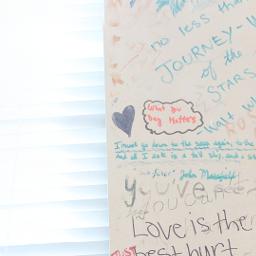 no less tha
JOURNEY-W
of the
STARS
Walt W
What You
Say Matters
I must go down to the seas again, to the
And all I ask is a tall ship, and a s
John Masefield
you've
you can
Love is the
best hurt
JUST